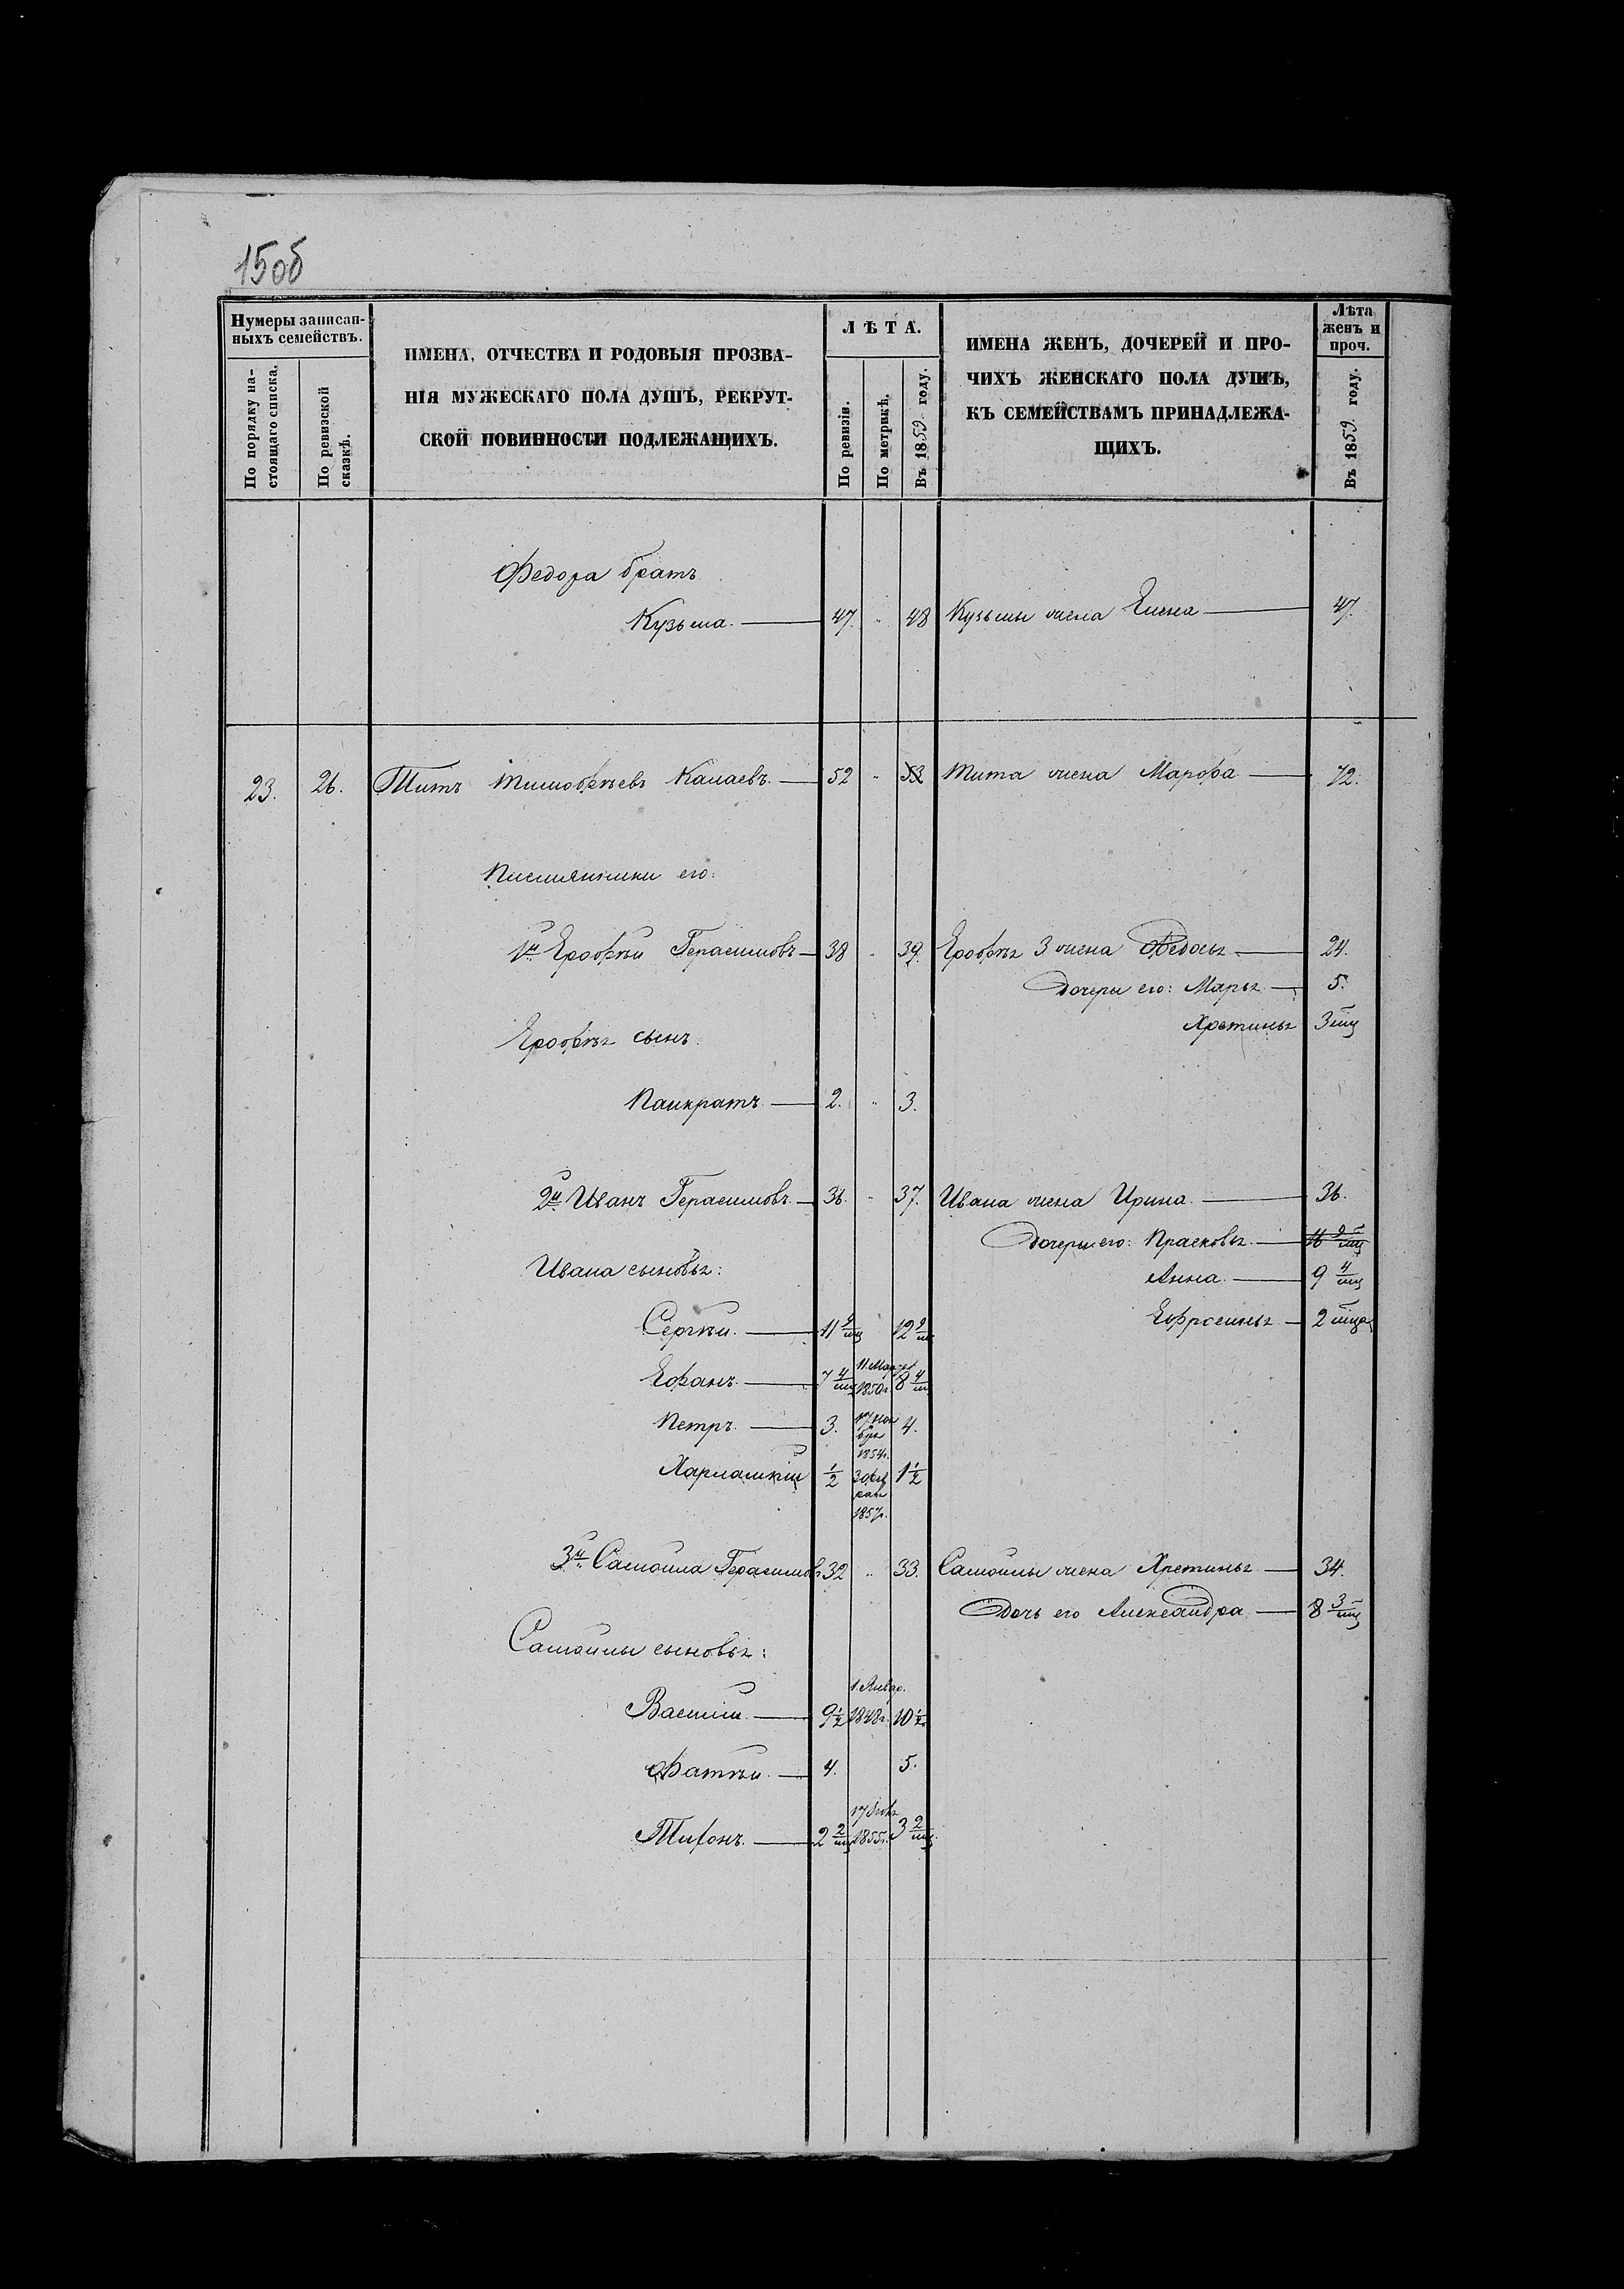 15об
Нумеры записан-
ныхъ семействъ.
По порядку на-
стоящаго списка.
По ревизской
сказкѣ.
ИМЕНА, ОТЧЕСТВА И РОДОВЫЯ ПРОЗВА-
НІЯ МУЖЕСКАГО ПОЛА ДУШЪ, РЕКРУТ-
СКОЙ ПОВИННОСТИ ПОДЛЕЖАЩИХЪ.
ЛѢТА.
По ревизіи.
По метрикѣ.
Въ 1859 году.
ИМЕНА ЖЕНЪ, ДОЧЕРЕЙ И ПРО-
ЧИХЪ ЖЕНСКАГО ПОЛА ДУШЪ,
КЪ СЕМЕЙСТВАМЪ ПРИНАДЛЕЖА-
ЩИХЪ.
Лѣта
женъ и
проч.
Въ 1859 году.
Федора братъ
Кузьма. 47. " 48 Кузьмы жена Елена 47.
23. 26. Титъ Тимофѣевъ Калаевъ. 52 " 53 Тита жена Марфа 72.
Племянники его:
1й Ерофѣй Герасимовъ 38 " 39. Ерофѣя 3 жена Федосья 24.
Дочери его: Марья 5.
Хрстинья 3 мц
Ерофѣя сынъ
Панкратъ 2. " 3.
2й Иванъ Герасимовъ 36. " 37. Ивана жена Ирина. 36.
Дочери его: Прасковья
Ивана сыновья:
Анна. 9 4/мц
Сергѣй. 11 9/мц 12 9/м
Ефросинья 2 мца
Ефанъ. 7 4/мц 11 Марта 1850г. 8 4/м
Петръ. 3. 1854г. 4.
Харлампій 1/2 1857г. 1 1/2
3й Самойла Герасимовъ 32 " 33. Самойлы жена Хрстинья 34.
Дочь его Александра 8 3/мц
Самойлы сыновья:
1. Январ.
Василій 9 1/2 1848г. 10 1/2
Фатѣй 4. 5.
Тихонъ. 2 2/мц 1855г. 3 2/мц.